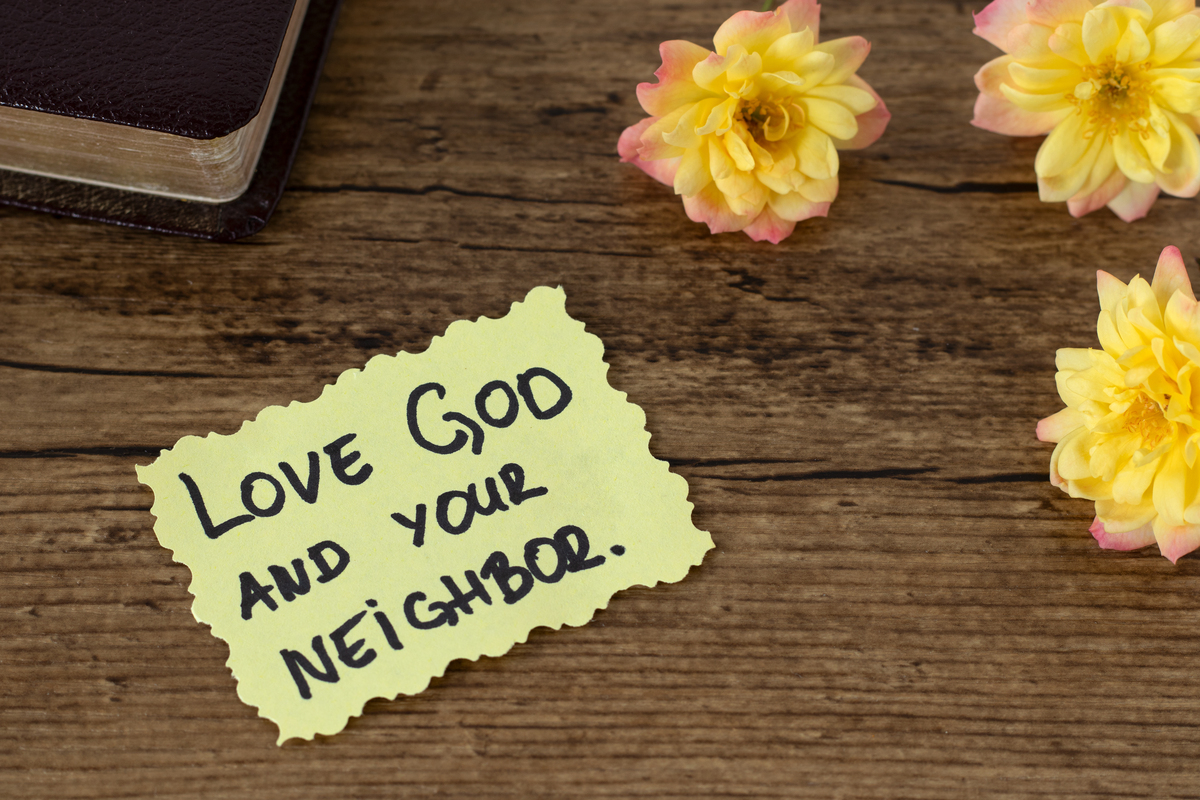 LOVE GOD
AND YOUR
NEiGHBOR.